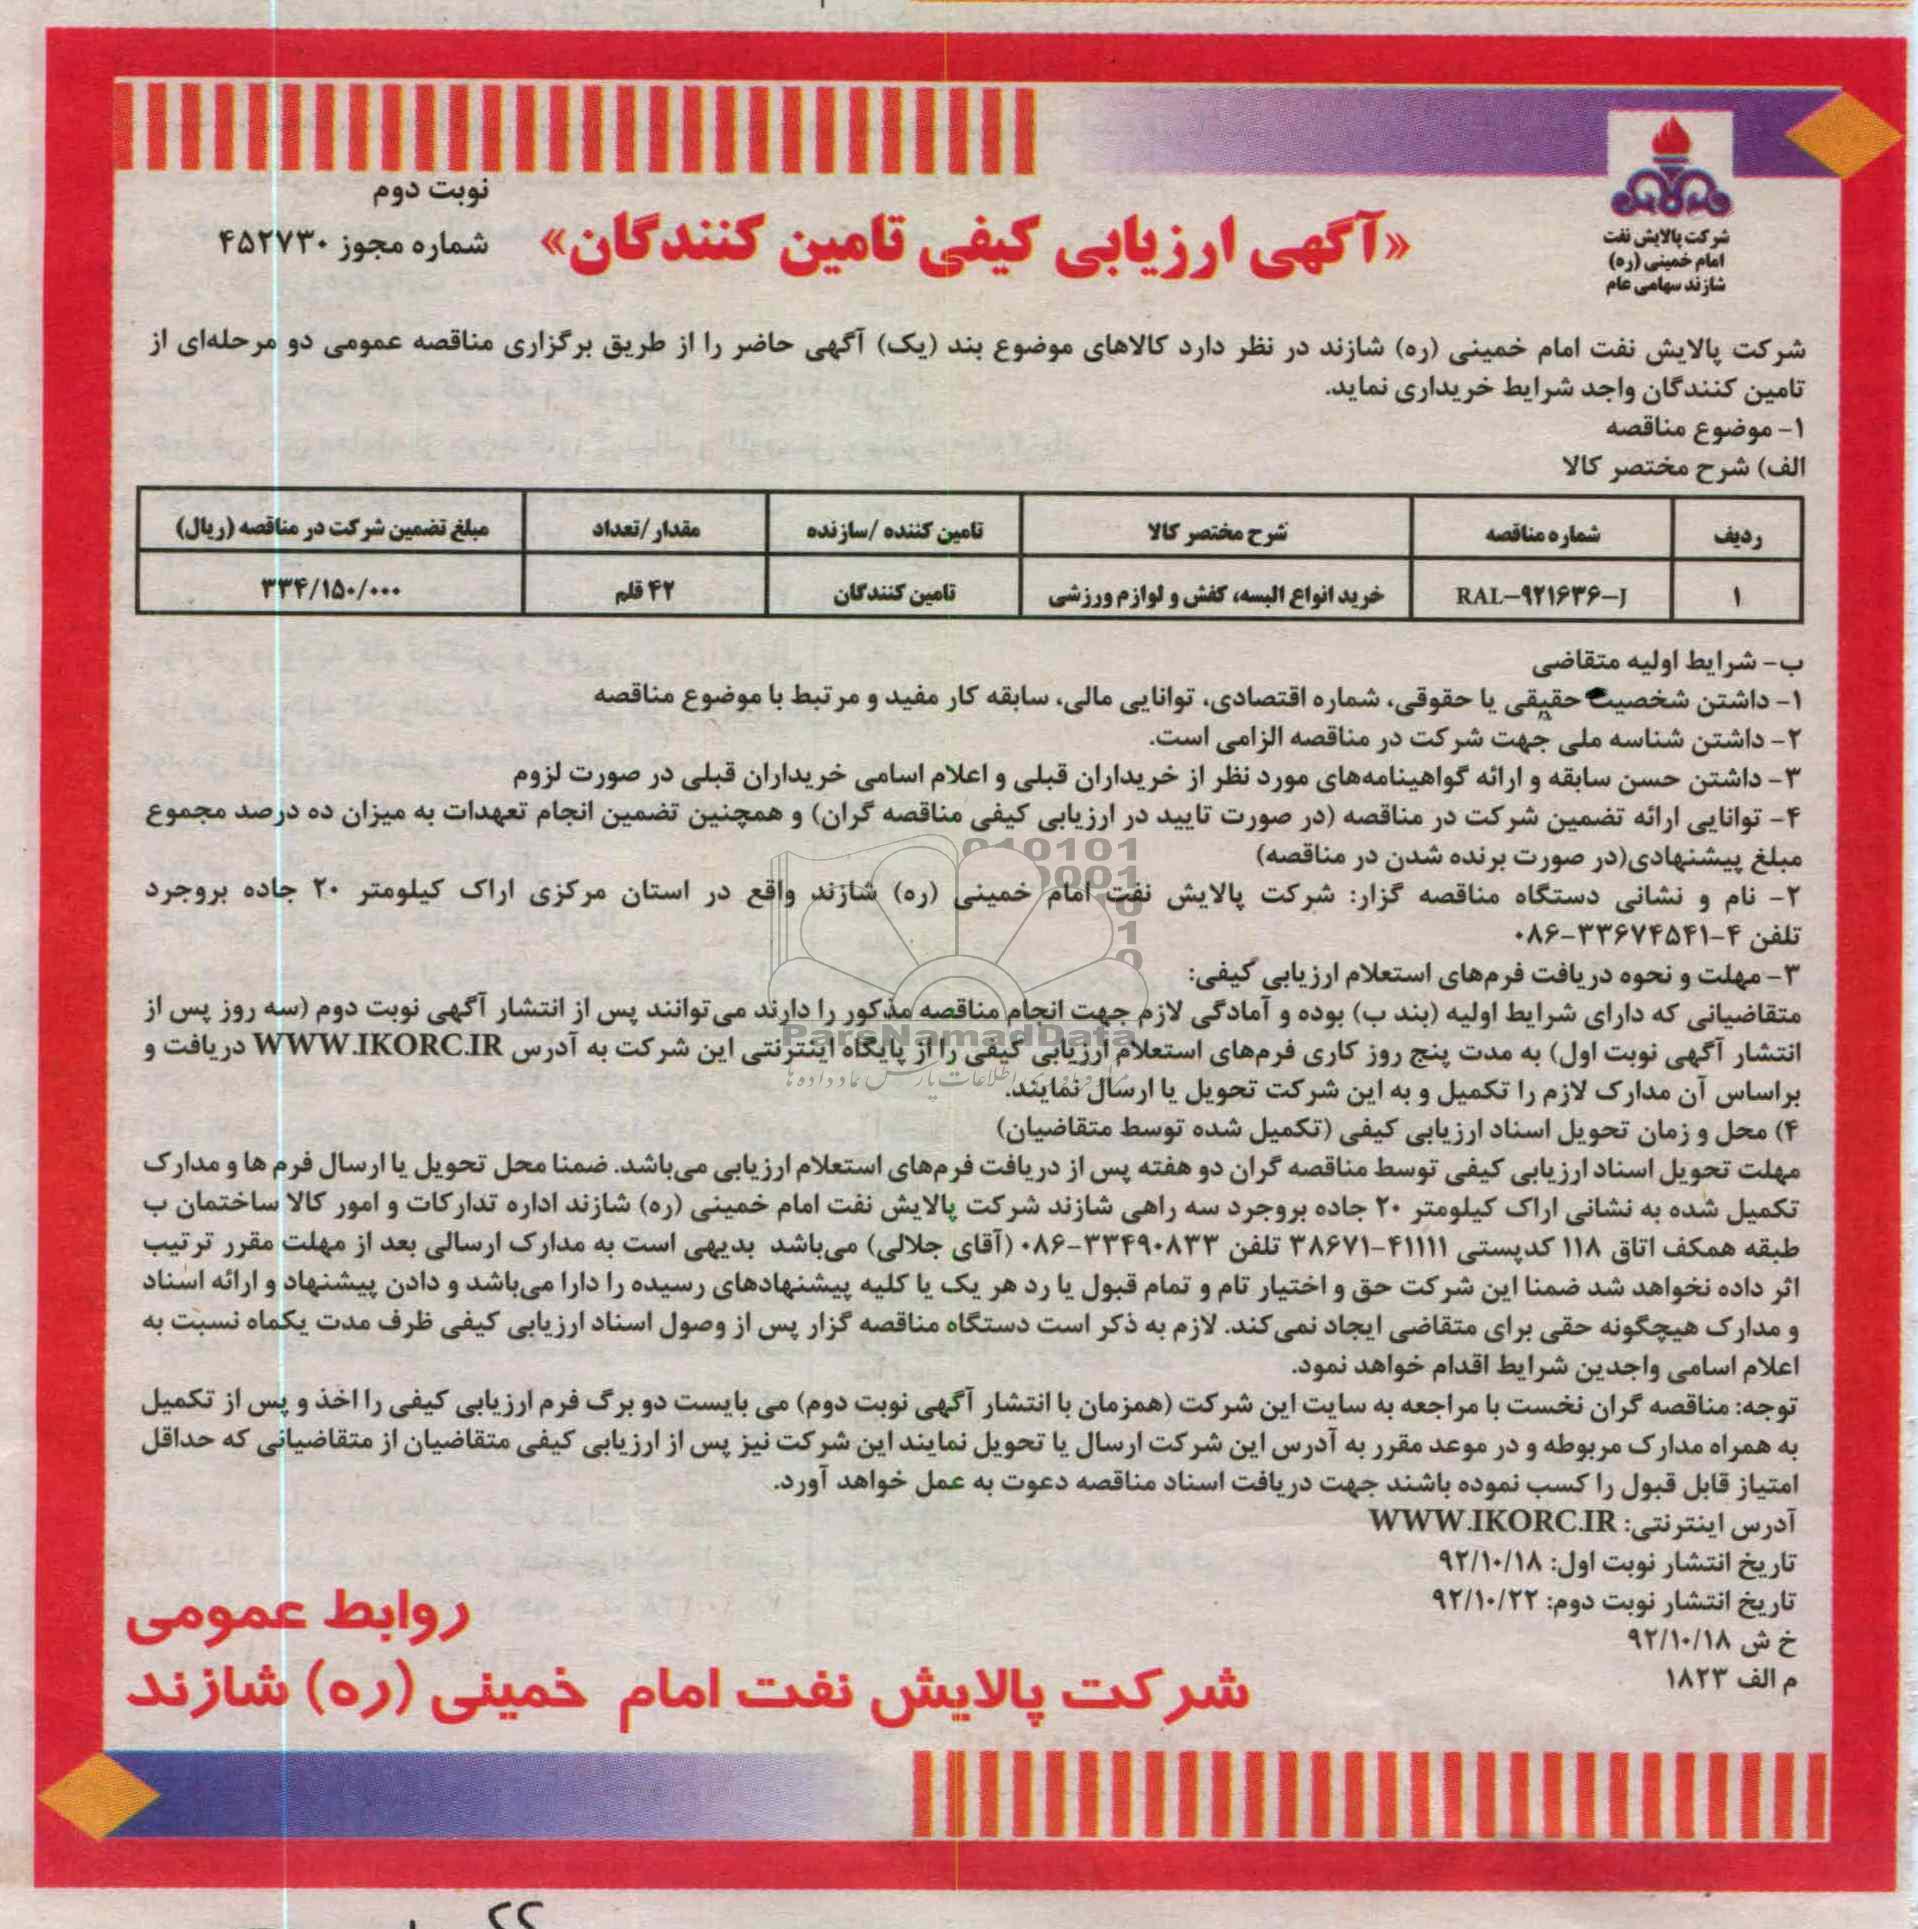 شرکت پالایش نفت
امام خمینی (ره)
شازند سهامی عام
نوبت دوم
شماره مجوز ۴۵۲۷۳۰
«آگهی ارزیابی کیفی تامین کنندگان»
شرکت پالایش نفت امام خمینی (ره) شازند در نظر دارد کالاهای موضوع بند (یک) آگهی حاضر را از طریق برگزاری مناقصه عمومی دو مرحله‌ای از
تامین کنندگان واجد شرایط خریداری نماید.
۱- موضوع مناقصه
الف) شرح مختصر کالا
ردیف شماره مناقصه شرح مختصر کالا تامین کننده /سازنده مقدار /تعداد مبلغ تضمین شرکت در مناقصه (ریال)
۱ RAL-۹۲۱۶۳۶-J خرید انواع البسه، کفش و لوازم ورزشی تامین کنندگان ۴۲ قلم ۳۳۴/۱۵۰/۰۰۰
ب- شرایط اولیه متقاضی
۱- داشتن شخصیت حقیقی یا حقوقی، شماره اقتصادی، توانایی مالی، سابقه کار مفید و مرتبط با موضوع مناقصه
۲- داشتن شناسه ملی جهت شرکت در مناقصه الزامی است.
۳- داشتن حسن سابقه و ارائه گواهینامه‌های مورد نظر از خریداران قبلی و اعلام اسامی خریداران قبلی در صورت لزوم
۴- توانایی ارائه تضمین شرکت در مناقصه (در صورت تایید در ارزیابی کیفی مناقصه گران) و همچنین تضمین انجام تعهدات به میزان ده درصد مجموع
مبلغ پیشنهادی(در صورت برنده شدن در مناقصه)
۲- نام و نشانی دستگاه مناقصه گزار: شرکت پالایش نفت امام خمینی (ره) شازند واقع در استان مرکزی اراک کیلومتر ۲۰ جاده بروجرد
تلفن ۴-۳۳۶۷۴۵۴۱-۰۸۶
۳- مهلت و نحوه دریافت فرم‌های استعلام ارزیابی کیفی:
متقاضیانی که دارای شرایط اولیه (بند ب) بوده و آمادگی لازم جهت انجام مناقصه مذکور را دارند می‌توانند پس از انتشار آگهی نوبت دوم (سه روز پس از
انتشار آگهی نوبت اول) به مدت پنج روز کاری فرم‌های استعلام ارزیابی کیفی را از پایگاه اینترنتی این شرکت به آدرس WWW.IKORC.IR دریافت و
براساس آن مدارک لازم را تکمیل و به این شرکت تحویل یا ارسال نمایند.
۴) محل و زمان تحویل اسناد ارزیابی کیفی (تکمیل شده توسط متقاضیان)
مهلت تحویل اسناد ارزیابی کیفی توسط مناقصه گران دو هفته پس از دریافت فرم‌های استعلام ارزیابی می‌باشد. ضمنا محل تحویل یا ارسال فرم ها و مدارک
تکمیل شده به نشانی اراک کیلومتر ۲۰ جاده بروجرد سه راهی شازند شرکت پالایش نفت امام خمینی (ره) شازند اداره تدارکات و امور کالا ساختمان ب
طبقه همکف اتاق ۱۱۸ کدپستی ۴۱۱۱۱-۳۸۶۷۱ تلفن ۳۳۴۹۰۸۳۳-۰۸۶ (آقای جلالی) می‌باشد بدیهی است به مدارک ارسالی بعد از مهلت مقرر ترتیب
اثر داده نخواهد شد ضمنا این شرکت حق و اختیار تام و تمام قبول یا رد هر یک یا کلیه پیشنهادهای رسیده را دارا می‌باشد و دادن پیشنهاد و ارائه اسناد
و مدارک هیچگونه حقی برای متقاضی ایجاد نمی‌کند. لازم به ذکر است دستگاه مناقصه گزار پس از وصول اسناد ارزیابی کیفی ظرف مدت یکماه نسبت به
اعلام اسامی واجدین شرایط اقدام خواهد نمود.
توجه: مناقصه گران نخست با مراجعه به سایت این شرکت (همزمان با انتشار آگهی نوبت دوم) می بایست دو برگ فرم ارزیابی کیفی را اخذ و پس از تکمیل
به همراه مدارک مربوطه و در موعد مقرر به آدرس این شرکت ارسال یا تحویل نمایند این شرکت نیز پس از ارزیابی کیفی متقاضیان از متقاضیانی که حداقل
امتیاز قابل قبول را کسب نموده باشند جهت دریافت اسناد مناقصه دعوت به عمل خواهد آورد.
آدرس اینترنتی: WWW.IKORC.IR
تاریخ انتشار نوبت اول: ۹۲/۱۰/۱۸
تاریخ انتشار نوبت دوم: ۹۲/۱۰/۲۲
خ ش ۹۲/۱۰/۱۸
م الف ۱۸۲۳
روابط عمومی
شرکت پالایش نفت امام خمینی (ره) شازند
ParsNamadData